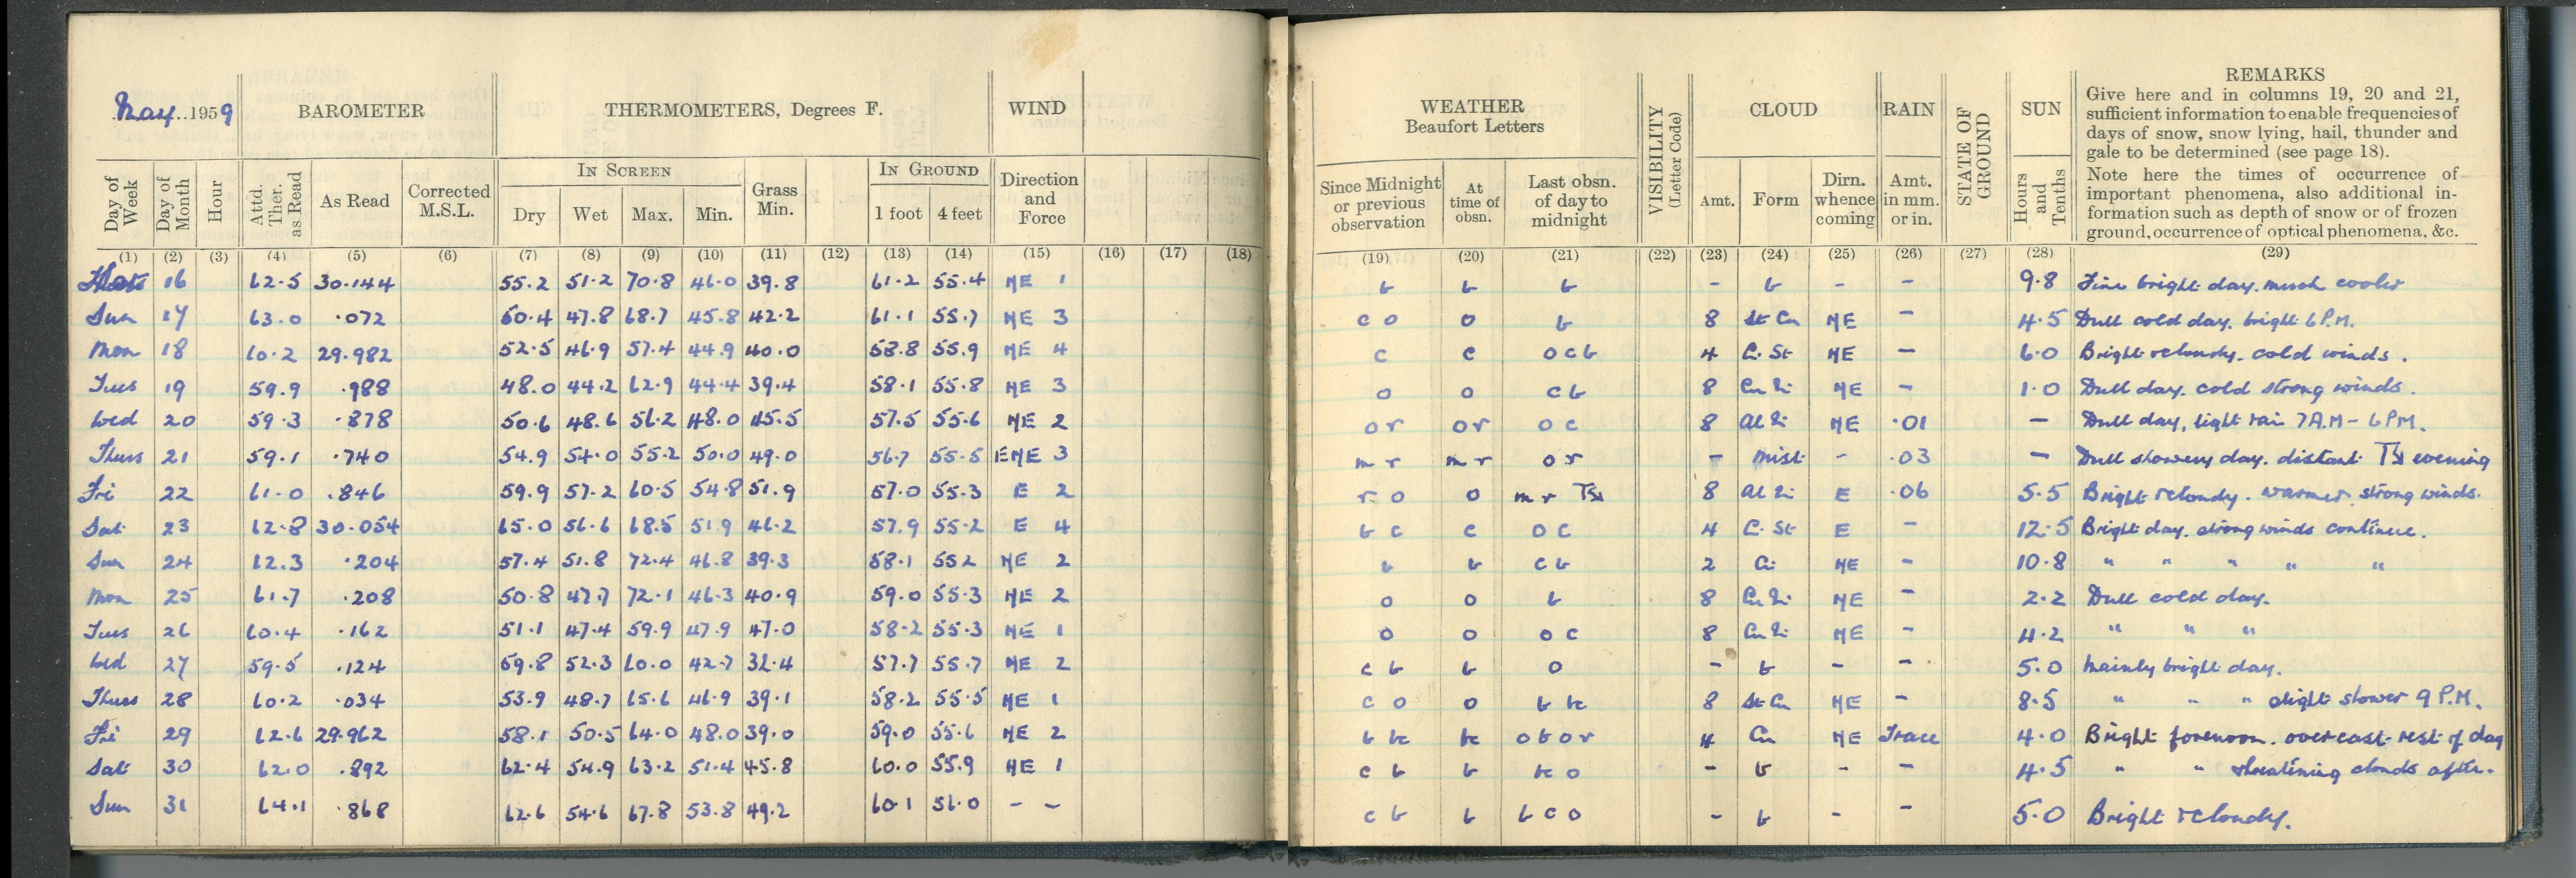 May 1959 BAROMETER THERMOMETERS, Degrees F. WIND
IN SCREEN IN GROUND
Day of Week Day of Month Hour Attd. Ther. as Read As Read Corrected M.S.L. Dry Wet Max. Min. Grass Min. 1 foot 4 feet Direction and Force
(1) (2) (3) (4) (5) (6) (7) (8) (9) (10) (11) (12) (13) (14) (15) (16) (17) (18)
16 62.5 30.144 55.2 51.2 70.8 46.0 39.8 61.2 55.4 NE 1
Sun 17 63.0 .072 50.4 47.8 68.7 45.8 42.2 61.1 55.7 NE 3
Mon 18 60.2 29.982 52.5 46.9 57.4 44.9 40.0 58.8 55.9 NE 4
Tues 19 59.9 .988 48.0 44.2 62.9 44.4 39.4 58.1 55.8 NE 3
Wed 20 59.3 .878 50.6 48.6 56.2 48.0 45.5 57.5 55.6 NE 2
Thurs 21 59.1 .740 54.9 54.0 55.2 50.0 49.0 56.7 55.5 ENE 3
Fri 22 61.0 .846 59.9 57.2 60.5 54.8 51.9 57.0 55.3 E 2
Sat 23 62.8 30.054 65.0 56.6 68.5 51.9 46.2 57.9 55.2 E 4
Sun 24 62.3 .204 57.4 51.8 72.4 46.8 39.3 58.1 552 NE 2
Mon 25 61.7 .208 50.8 47.7 72.1 46.3 40.9 59.0 55.3 NE 2
Tues 26 60.4 .162 51.1 47.4 59.9 47.9 47.0 58.2 55.3 NE 1
Wed 27 59.5 .124 59.8 52.3 60.0 42.7 32.4 57.7 55.7 NE 2
Thurs 28 60.2 .034 53.9 48.7 65.6 46.9 39.1 58.2 55.5 NE 1
Fri 29 62.6 29.962 58.1 50.5 64.0 48.0 39.0 59.0 55.6 NE 2
Sat 30 62.0 .892 62.4 54.9 63.2 51.4 45.8 60.0 55.9 NE 1
Sun 31 64.1 .868 62.6 54.6 67.8 53.8 49.2 60.1 56.0 - -
WEATHER Beaufort Letters VISIBILITY (Letter Code) CLOUD RAIN STATE OF GROUND SUN REMARKS
Give here and in columns 19, 20 and 21,
sufficient information to enable frequencies of
days of snow, snow lying, hail, thunder and
gale to be determined (see page 18).
Note here the times of occurrence of
important phenomena, also additional in-
formation such as depth of snow or of frozen
ground, occurrence of optical phenomena, &c.
Since Midnight or previous observation At time of obsn. Last obsn. of day to midnight Amt. Form Dirn. whence coming Amt. in mm. or in. Hours and Tenths
(19) (20) (21) (22) (23) (24) (25) (26) (27) (28) (29)
b b b - b - - 9.8 Fine bright day. much cooler
c o o b 8 St Cu NE - 4.5 Dull cold day. bright 6 P.M.
c c o c b 4 C. St NE - 6.0 Bright & cloudy. cold winds.
o o c b 8 Cu Ni NE - 1.0 Dull day. cold strong winds.
o r o r o c 8 Al Ni NE .01 - Dull day, light rain 7 A.M - 6 PM.
m r m r o r - Mist - .03 - Dull showery day. distant Ts evening
r o o m r Ts 8 Al Ni E .06 5.5 Bright & cloudy. warmer. strong winds.
b c c o c 4 C. St E - 12.5 Bright day. strong winds continue.
b b c b 2 Ci NE - 10.8 " " " " "
o o b 8 Cu Ni NE - 2.2 Dull cold day.
o o o c 8 Cu Ni NE - 4.2 " " "
c b b o - b - - 5.0 Mainly bright day.
c o o b bc 8 St Cu NE - 8.5 " " " slight shower 9 P.M.
b bc bc o b o r 4 Cu NE Trace 4.0 Bright forenoon. overcast rest of day
c b b bc o - b - - 4.5 " " threatening clouds after.
c b b b c o - b - - 5.0 Bright & cloudy.